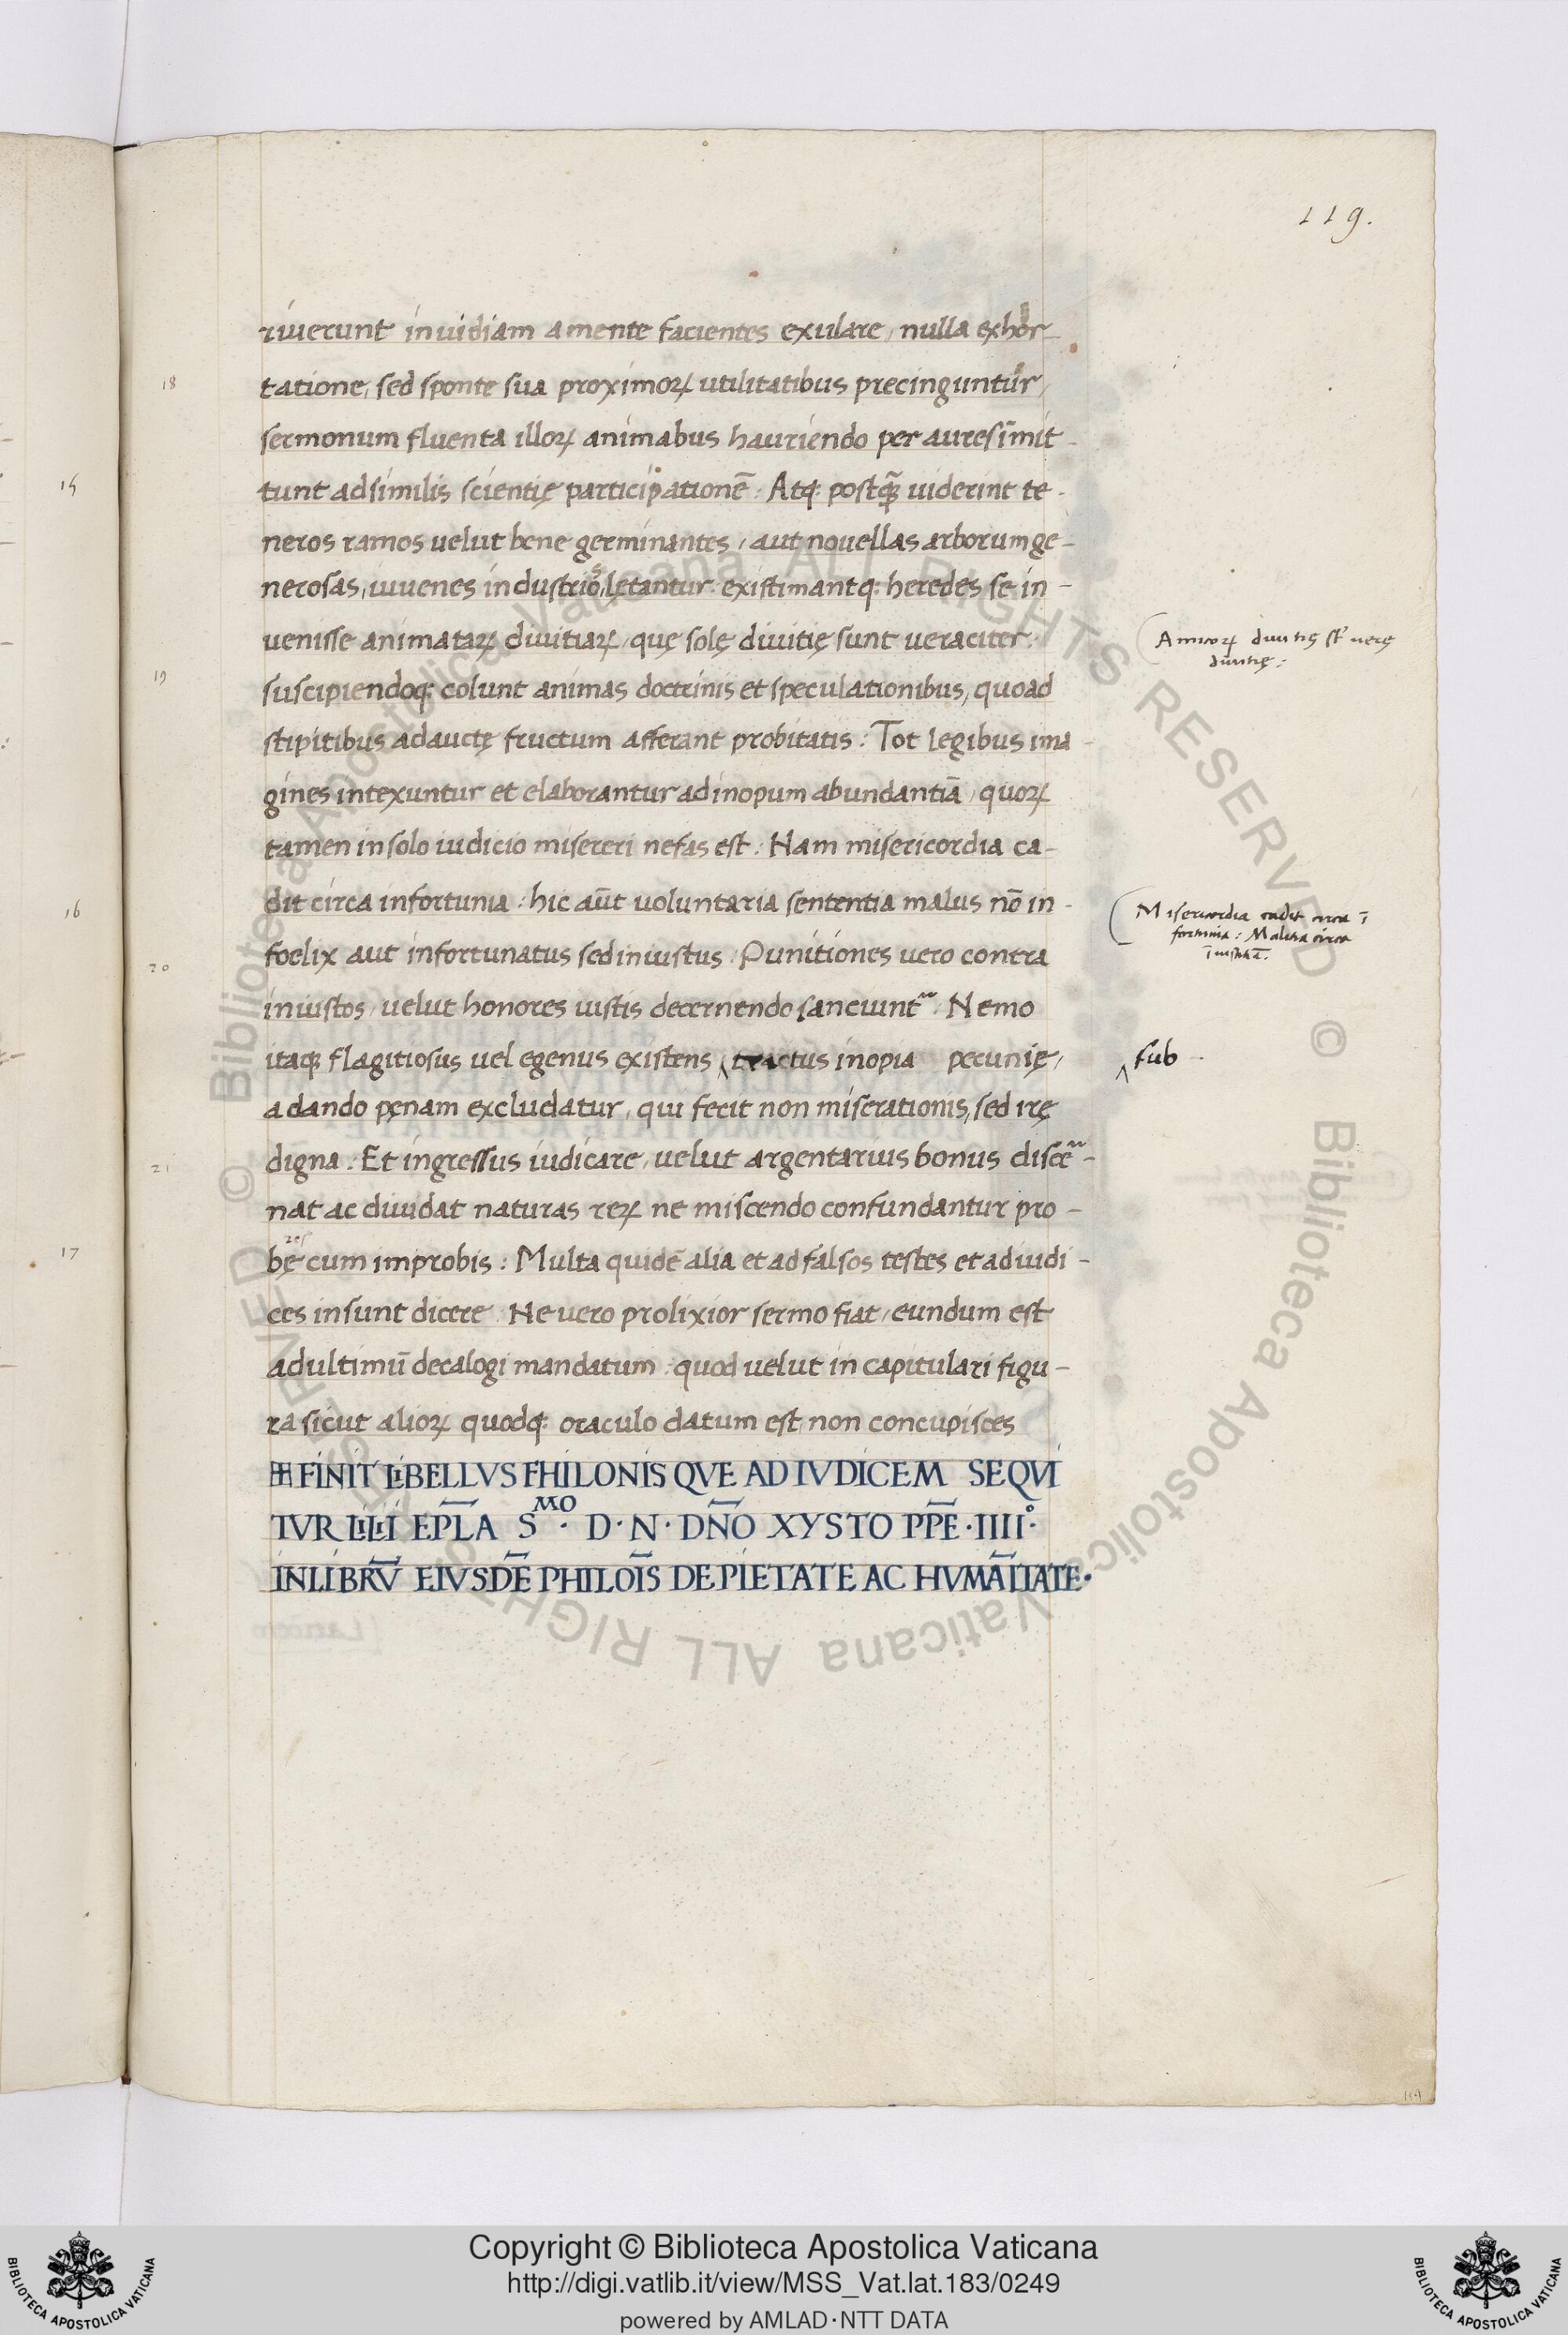 119.
riuerunt inuidiam a mente facientes exulare, nulla exhor-
18
tatione, sed sponte sua proximoꝝ utilitatibus precinguntur,
sermonum fluenta illoꝝ animabus hauriendo per aures īmit-
15
tunt ad similis scientię participationē: Atq: postꝙ̃ uiderint te-
neros ramos uelut bene germinantes, aut nouellas arborum ge-
nerosas, iuuenes industrios, lętantur: existimantq: heredes se in-
uenisse animataꝝ diuitiaꝝ, quę solę diuitię sunt ueraciter:
Amicoꝝ diuitię st̄ uerę
diuitię:
19
suscipiendoq: colunt animas doctrinis et speculationibus, quoad
stipitibus adauctę fructum afferant probitatis: Tot legibus ima-
gines intexuntur et elaborantur ad inopum abundantiā, quoꝝ
tamen in solo iudicio misereri nefas est: Nam misericordia ca-
16
dit circa infortunia: hic aūt uoluntaria sententia malus nō in-
Misericordia cadit circa ī
fortunia: Malitia circa
īiustitiā.
20
foelix aut infortunatus sed iniustus: Punitiones uero contra
iniustos, uelut honores iustis decernendo sanciunt᷑: Nemo
itaq; flagitiosus uel egenus existens ‸ tractus inopia pecunię,
‸ sub
a dando pęnam excludatur, qui fecit non miserationis, sed irę
21
digna: Et ingressus iudicare, uelut argentarius bonus discer-
nat ac diuidat naturas reꝝ ne miscendo confundantur pro-
17
res
bę cum improbis: Multa quidē alia et ad falsos testes et ad iudi-
ces insunt dicere: Ne uero prolixior sermo fiat, eundum est
ad ultimū decalogi mandatum: quod uelut in capitulari figu-
ra sicut alioꝝ quodq: oraculo datum est, non concupisces
FINIT LIBELLVS FHILONIS QVE AD IVDICEM SEQVI
TVR LILII EPL̄A S^MO· D·N·DÑO XYSTO PP̄E·IIII°·
IN LIBRV̄ EIVSDĒ PHILOĪS DE PIETATE AC HVMĀITATE·
119
Copyright © Biblioteca Apostolica Vaticana
http://digi.vatlib.it/view/MSS_Vat.lat.183/0249
powered by AMLAD·NTT DATA
BIBLIOTECA APOSTOLICA VATICANA
BIBLIOTECA APOSTOLICA VATICANA
© Biblioteca Apostolica Vaticana ALL RIGHTS RESERVED
© Biblioteca Apostolica Vaticana ALL RIGHTS RESERVED